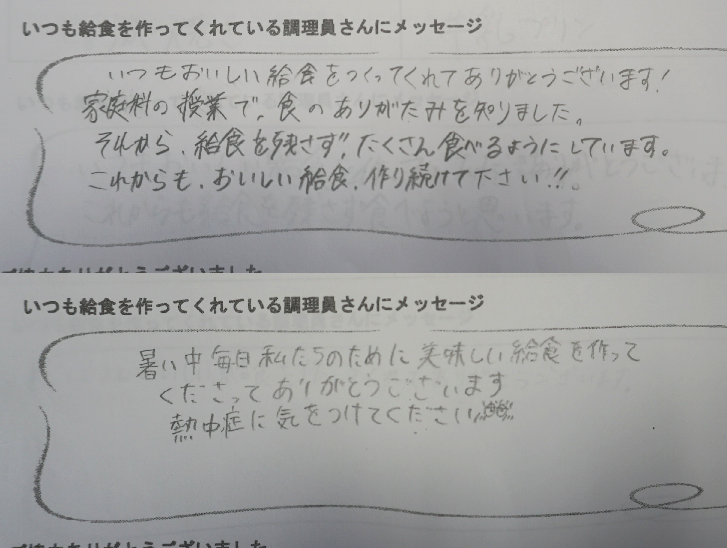 いつも給食を作ってくれている調理員さんにメッセージ
いつもおいしい給食をつくってくれてありがとうございます!
家庭科の授業で、食のありがたみを知りました。
それから、給食を残さず、たくさん食べるようにしています。
これからも、おいしい給食、作り続けて下さい!!。
ありがとうございました
いつも給食を作ってくれている調理員さんにメッセージ
暑い中毎日私たちのために美味しい給食を作って
くださってありがとうございます
熱中症に気をつけてください